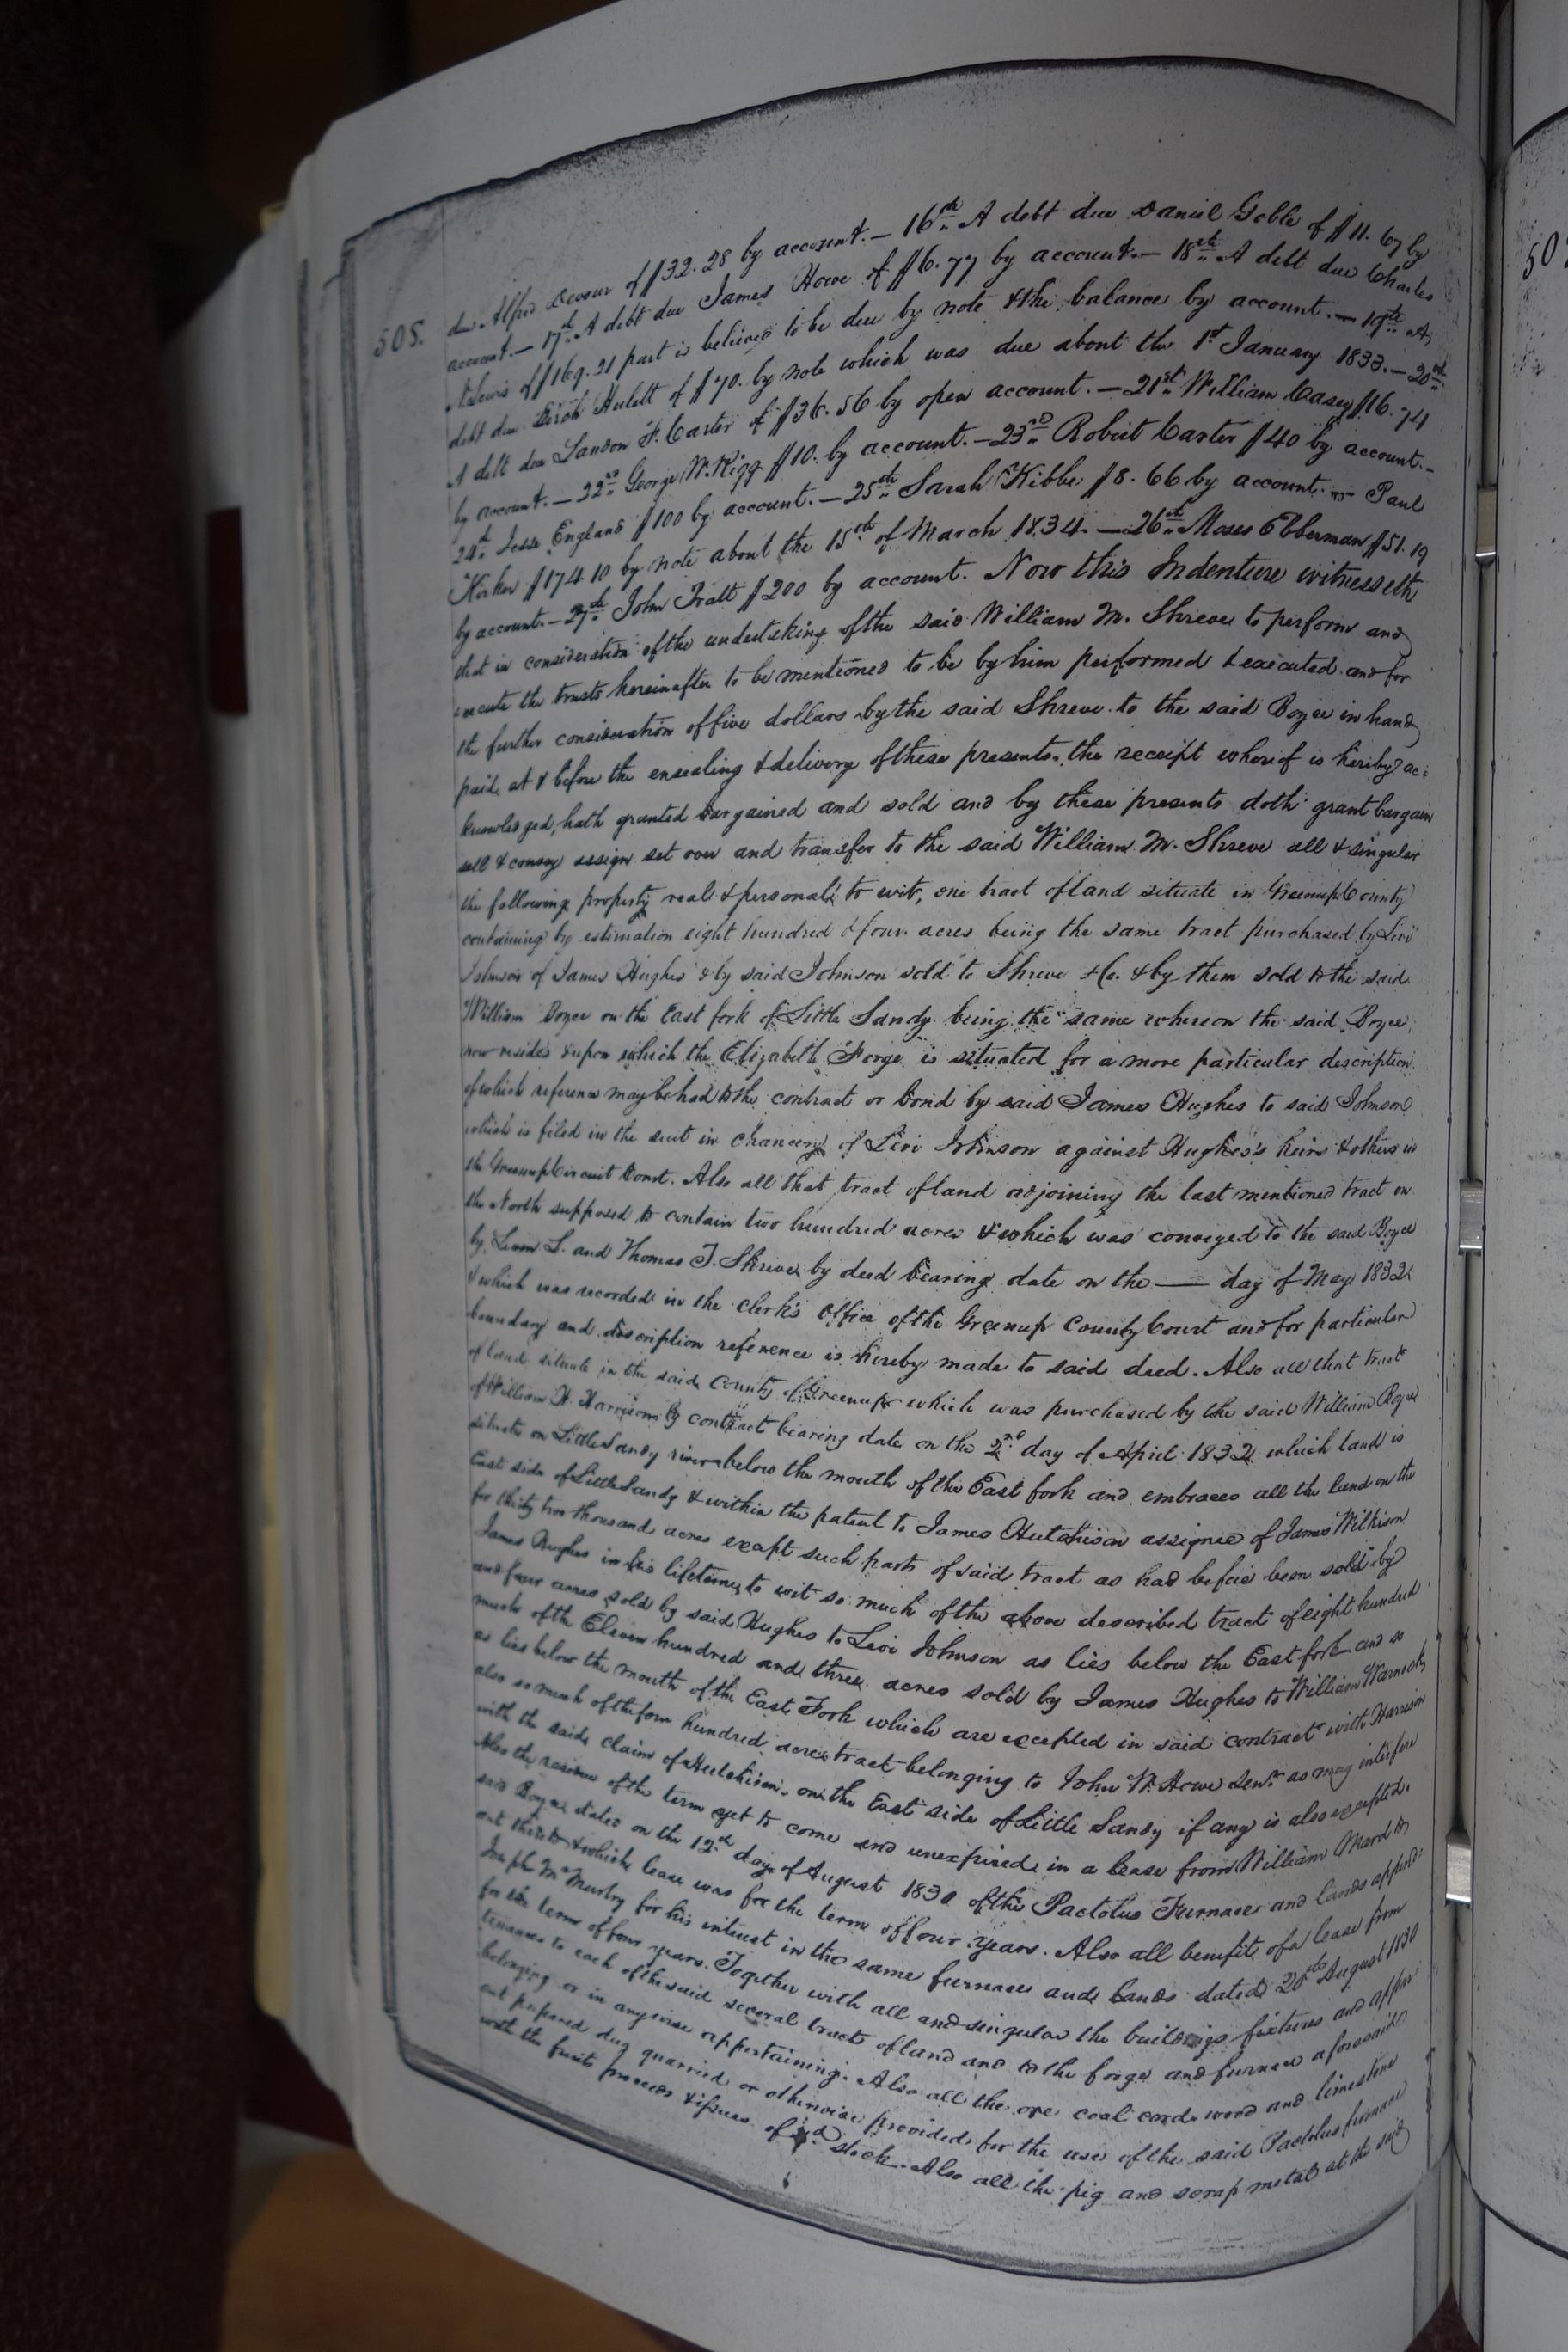 505.
due Alfred Devour of $32.28 by account. — 16th A debt due Daniel Goble of $11.67 by
account. — 17th A debt due James Howe of $6.77 by account. — 18th A debt due Charles
N. Lewis of $169.21 part is believed to be due by note & the balance by account. — 19th A
debt due Hulett of $70. by note which was due about the 1st January 1833. — 20th
A debt due Landon F. Carter of $36.56 by open account. — 21st William Casey $16.74
by account. — 22nd George W. Rigg $10. by account. — 23rd Robert Carter $40 by account. —
24th Jesse England $100 by account. — 25th Sarah Kibbe $8.66 by account. — Paul
Kirker $174.10 by note about the 15th of March 1834. — 26th Moses Ebberman $51.19
by account. — 27th John Pratt $200 by account. Now this Indenture witnesseth
that in consideration of the undertaking of the said William M. Shreve to perform and
execute the trusts hereinafter to be mentioned to be by him performed & executed and for
the further consideration of five dollars by the said Shreve to the said Boyce in hand
paid, at & before the ensealing & delivery of these presents, the receipt whereof is hereby ac=
knowledged, hath granted bargained and sold and by these presents doth grant bargain
sell & convey assign set over and transfer to the said William M. Shreve all & singular
the following property real & personal, to wit, one tract of land situate in Greenup County
containing by estimation eight hundred & four acres being the same tract purchased by Levi
Johnson of James Hughes & by said Johnson sold to Shreve & Co. & by them sold to the said
William Boyce on the East fork of Little Sandy being the same whereon the said Boyce
now resides & upon which the Elizabeth Forge is situated for a more particular description
of which reference may be had to the contract or bond by said James Hughes to said Johnson
which is filed in the suit in chancery of Levi Johnson against Hughes's heirs & others in
the Greenup Circuit Court. Also all that tract of land adjoining the last mentioned tract on
the North supposed to contain two hundred acres & which was conveyed to the said Boyce
by L. and Thomas T. Shreve by deed bearing date on the —— day of May 1832
& which was recorded in the clerk's office of the Greenup County Court and for particular
boundary and discription reference is hereby made to said deed. Also all that tract
of land situate in the said County of Greenup which was purchased by the said William Boyce
of William H. Harrison by contract bearing date on the 2nd day of April 1832 which land is
situate on Little Sandy river below the mouth of the East fork and embraces all the land on the
East side of Little Sandy & within the patent to James Hutchison assignee of James Wilkison
for thirty two thousand acres exept such parts of said tract as had before been sold by
James Hughes in his lifetime, to wit so much of the above described tract of eight hundred
and four acres sold by said Hughes to Levi Johnson as lies below the East fork and so
much of the Eleven hundred and three acres sold by James Hughes to William
as lies below the mouth of the East Fork which are excepted in said contract with Harrison
also so much of the four hundred acre tract belonging to John W. Howe Senr. as may interfere
with the said claim of Hutchison, on the East side of Little Sandy if any is also excepted.
Also the residue of the term yet to come and unexpired in a lease from William Ward to
said Boyce dated on the 12th day of August 1830 of the Pactolus Furnace and lands appurt=
ant thereto & which lease was for the term of four years. Also all benefit of a lease from
Joseph McMurtry for his interest in the same furnace and lands dated 20th August 1830
for the term of four years. Together with all and singular the buildings fixtures and appur=
tenances to each of the said several tracts of land and to the forge and furnace aforesaid
belonging or in anywise appertaining. Also all the ore coal cord wood and limestone
cut prepared dug quarried or otherwise provided for the use of the said Pactolus furnace
with the fruits proceeds & issues of sd. stock. Also all the pig and scrap metal at the said